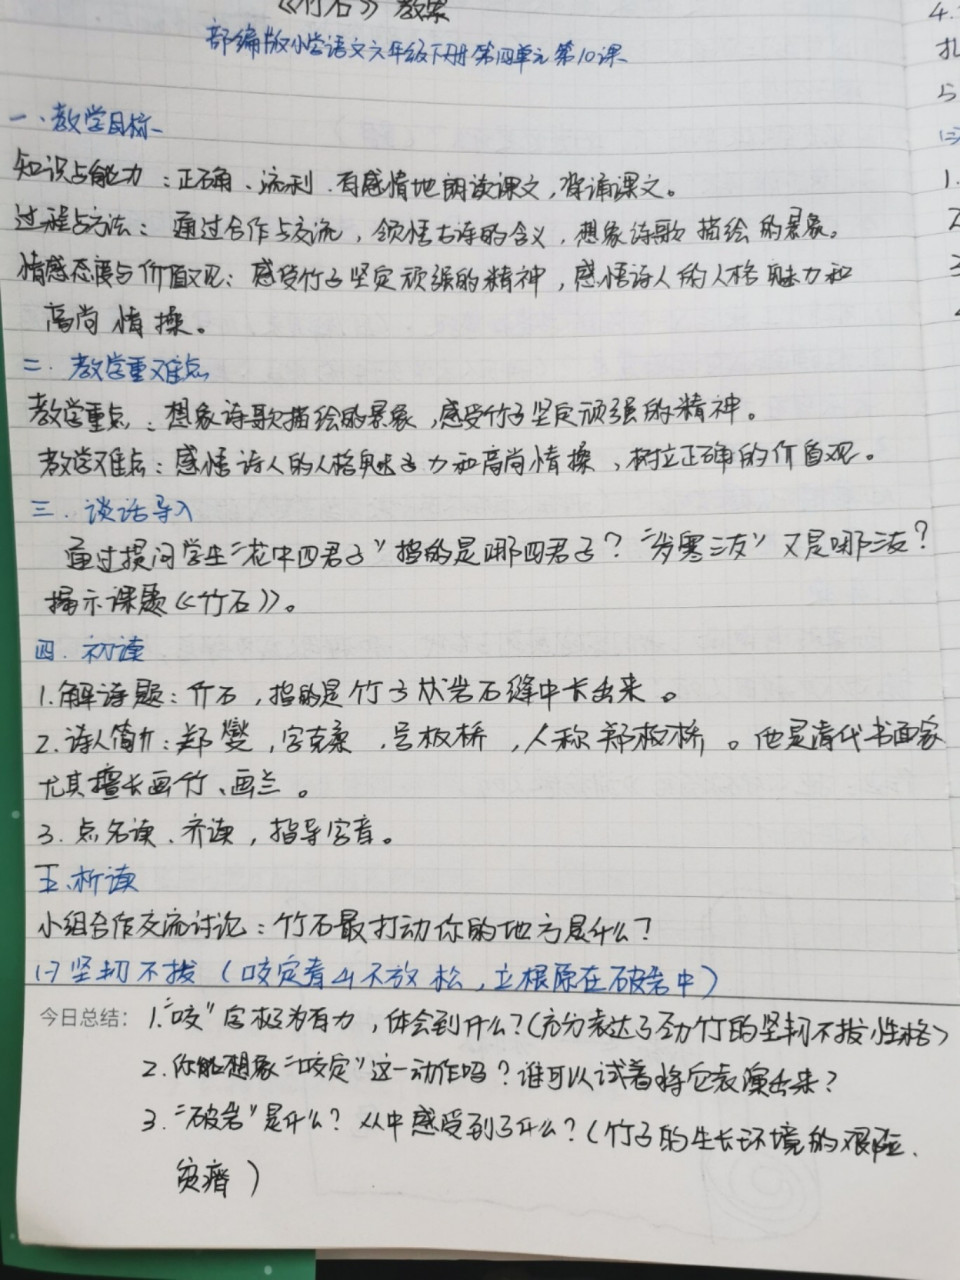 《竹石》教案
部编版小学语文六年级下册第四单元第10课
一、教学目标
知识与能力：正确、流利、有感情地朗读课文，背诵课文。
过程与方法：通过合作与交流，领悟古诗的含义，想象诗歌描绘的景象。
情感态度与价值观：感受竹子坚定顽强的精神，感悟诗人的人格魅力和
高尚情操。
二、教学重难点
教学重点：想象诗歌描绘的景象，感受竹子坚定顽强的精神。
教学难点：感悟诗人的人格魅力和高尚情操，树立正确的价值观。
三、谈话导入
通过提问学生“花中四君子”指的是哪四君子？“岁寒三友”又是哪三友？
揭示课题《竹石》。
四、初读
1.解诗题：竹石，指的是竹子从岩石缝中长出来。
2.诗人简介：郑燮，字克柔，号板桥，人称郑板桥。他是清代书画家
尤其擅长画竹、画兰。
3.点名读、齐读，指导字音。
五、析读
小组合作交流讨论：竹石最打动你的地方是什么？
(一)坚韧不拔（咬定青山不放松，立根原在破岩中）
今日总结：1.“咬”字极为有力，体会到什么？（充分表达了劲竹的坚韧不拔性格）
2.你能想象“咬定”这一动作吗？谁可以试着将它表演出来？
3.“破岩”是什么？从中感受到了什么？（竹子的生长环境的艰险、
贫瘠）
4.
扎
与
(三)
1.
2
3